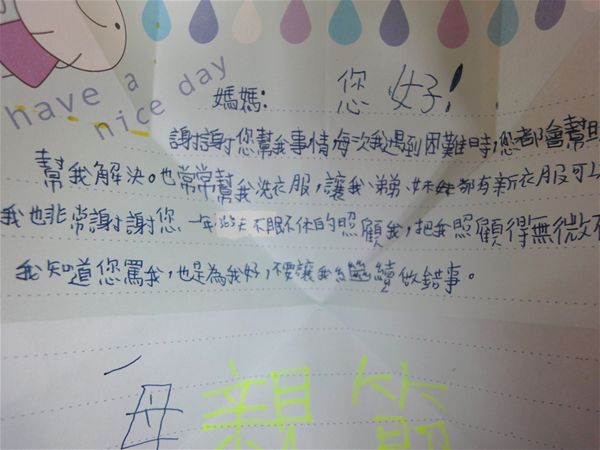 have a
nice day
媽媽: 您好!
謝謝您幫我事情每次我遇到困難時,您都會幫助
幫我解決。也常常幫我洗衣服,讓我、弟弟、妹妹都有新衣服可以
我也非常謝謝您一年365天不眠不休的照顧我,把我照顧得無微不
我知道您罵我,也是為我好,不要讓我繼續做錯事。
母親節